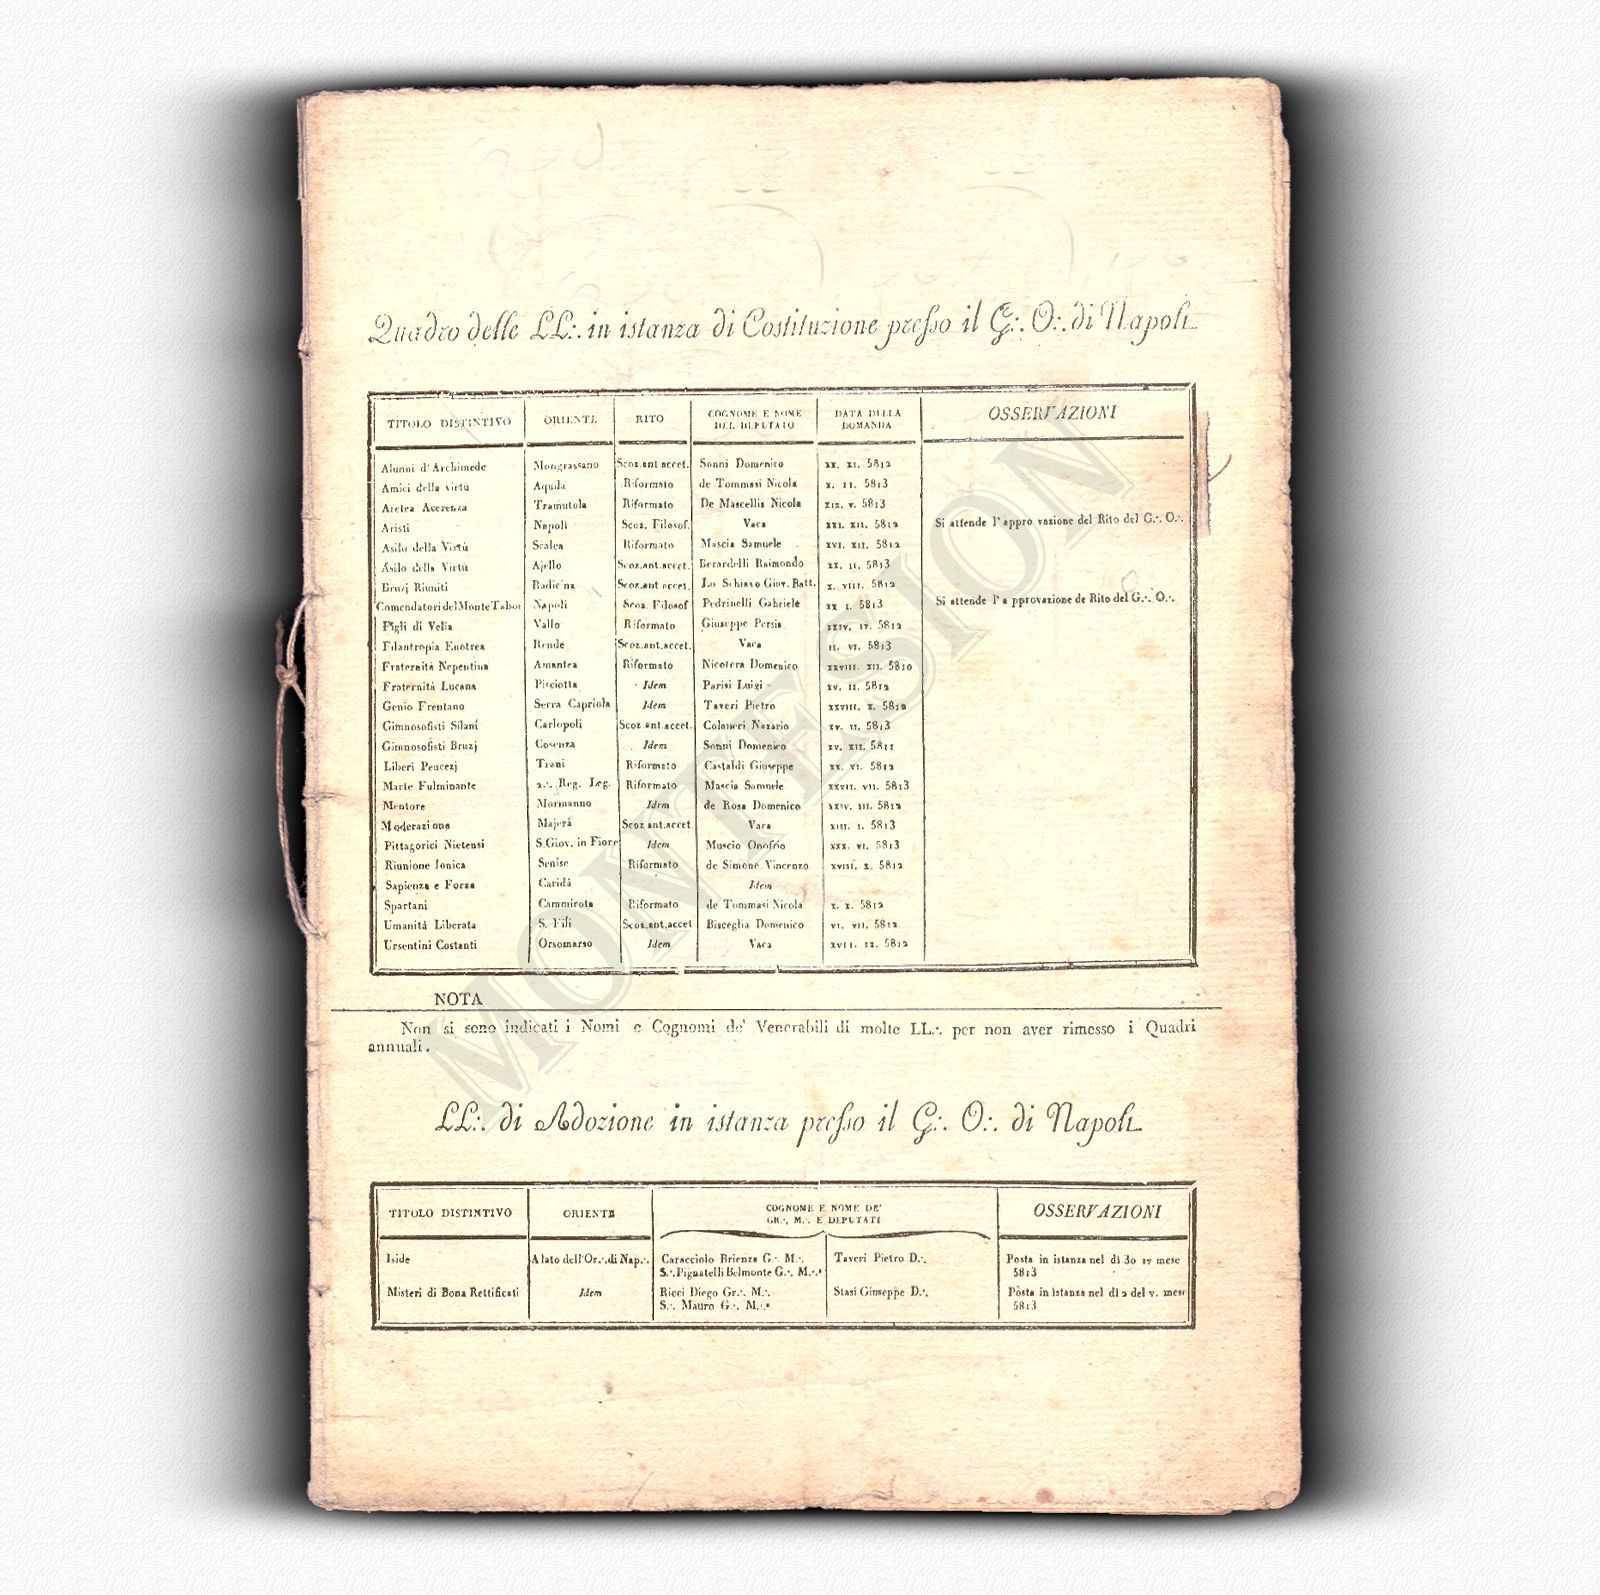 Quadro delle LL∴ in istanza di Costituzione presso il G∴ O∴ di Napoli
TITOLO DISTINTIVO ORIENTE RITO COGNOME E NOME DEL DEPUTATO DATA DELLA DOMANDA OSSERVAZIONI
Alunni d'Archimede Mongrassano Scoz.ant.accet. Sonni Domenico XX. XI. 5812
Amici della virtù Aquila Riformato de Tommasi Nicola X. II. 5813
Aretea Acerenza Tramutola Riformato De Mascellis Nicola XIX. V. 5813
Aristi Napoli Scoz. Filosof. Vaca XXI. XII. 5812 Si attende l'appro vazione del Rito del G∴ O∴
Asilo della Virtù Scalea Riformato Mascia Samuele XVI. XII. 5812
Asilo della Virtù Ajello Scoz.ant.accet. Berardelli Raimondo XX. II. 5813
Bruzj Riuniti Radicina Scoz.ant accet. Lo Schiavo Giov. Batt. X. VIII. 5812
Comendatori del Monte Tabor Napoli Scoz. Filosof Pedrinelli Gabriele XX I. 5813 Si attende l'a pprovazione de Rito del G∴ O∴
Figli di Velia Vallo Riformato Giuseppe Persia XXIV. IV. 5812
Filantropia Enotrea Rende Scoz.ant.accet. Vaca II. VI. 5813
Fraternità Nepentina Amantea Riformato Nicotera Domenico XXVIII. XII. 5810
Fraternità Lucana Pisciotta Idem Parisi Luigi XV. II. 5812
Genio Frentano Serra Capriola Idem Taveri Pietro XXVIII. X. 5812
Gimnosofisti Silani Carlopoli Scoz ant.accet. Coloneri Nazario XV. II. 5813
Gimnosofisti Bruzj Cosenza Idem Sonni Domenico XV. XII. 5811
Liberi Peucezj Trani Riformato Castaldi Giuseppe XX. VI. 5812
Marte Fulminante 2∴ Reg. Leg. Riformato Mascia Samuele XXVII. VII. 5813
Mentore Mormanno Idem de Rosa Domenico XXIV. III. 5812
Moderazione Majerà Scoz ant.accet Vaca XIII. I. 5813
Pittagorici Nietensi S.Giov. in Fiore Idem Muscio Onofrio XXX. VI. 5813
Riunione Ionica Senise Riformato de Simone Vincenzo XVIII. X. 5812
Sapienza e Forza Caridà Idem
Spartani Cammirota Riformato de Tommasi Nicola X. X. 5812
Umanità Liberata S. Fili Scoz.ant.accet Bisceglia Domenico VI. VII. 5812
Ursentini Costanti Orsomarso Idem Vaca XVII. IX. 5812
NOTA
Non si sono indicati i Nomi e Cognomi de' Venerabili di molte LL∴ per non aver rimesso i Quadri
annuali.
LL∴ di Adozione in istanza presso il G∴ O∴ di Napoli
TITOLO DISTINTIVO ORIENTE COGNOME E NOME DE' GR∴ M∴ E DEPUTATI OSSERVAZIONI
Iside A lato dell'Or∴ di Nap∴ Caracciolo Brienza G∴ M∴ Taveri Pietro D∴ Posta in istanza nel dì 30 IV mese
S∴ Pignatelli Belmonte G∴ M∴ª 5813
Misteri di Bona Rettificati Idem Ricci Diego Gr∴ M∴ Stasi Giuseppe D∴ Posta in istanza nel dì 2 del V. mese
S∴ Mauro G∴ M∴ª 5813
MONTESION